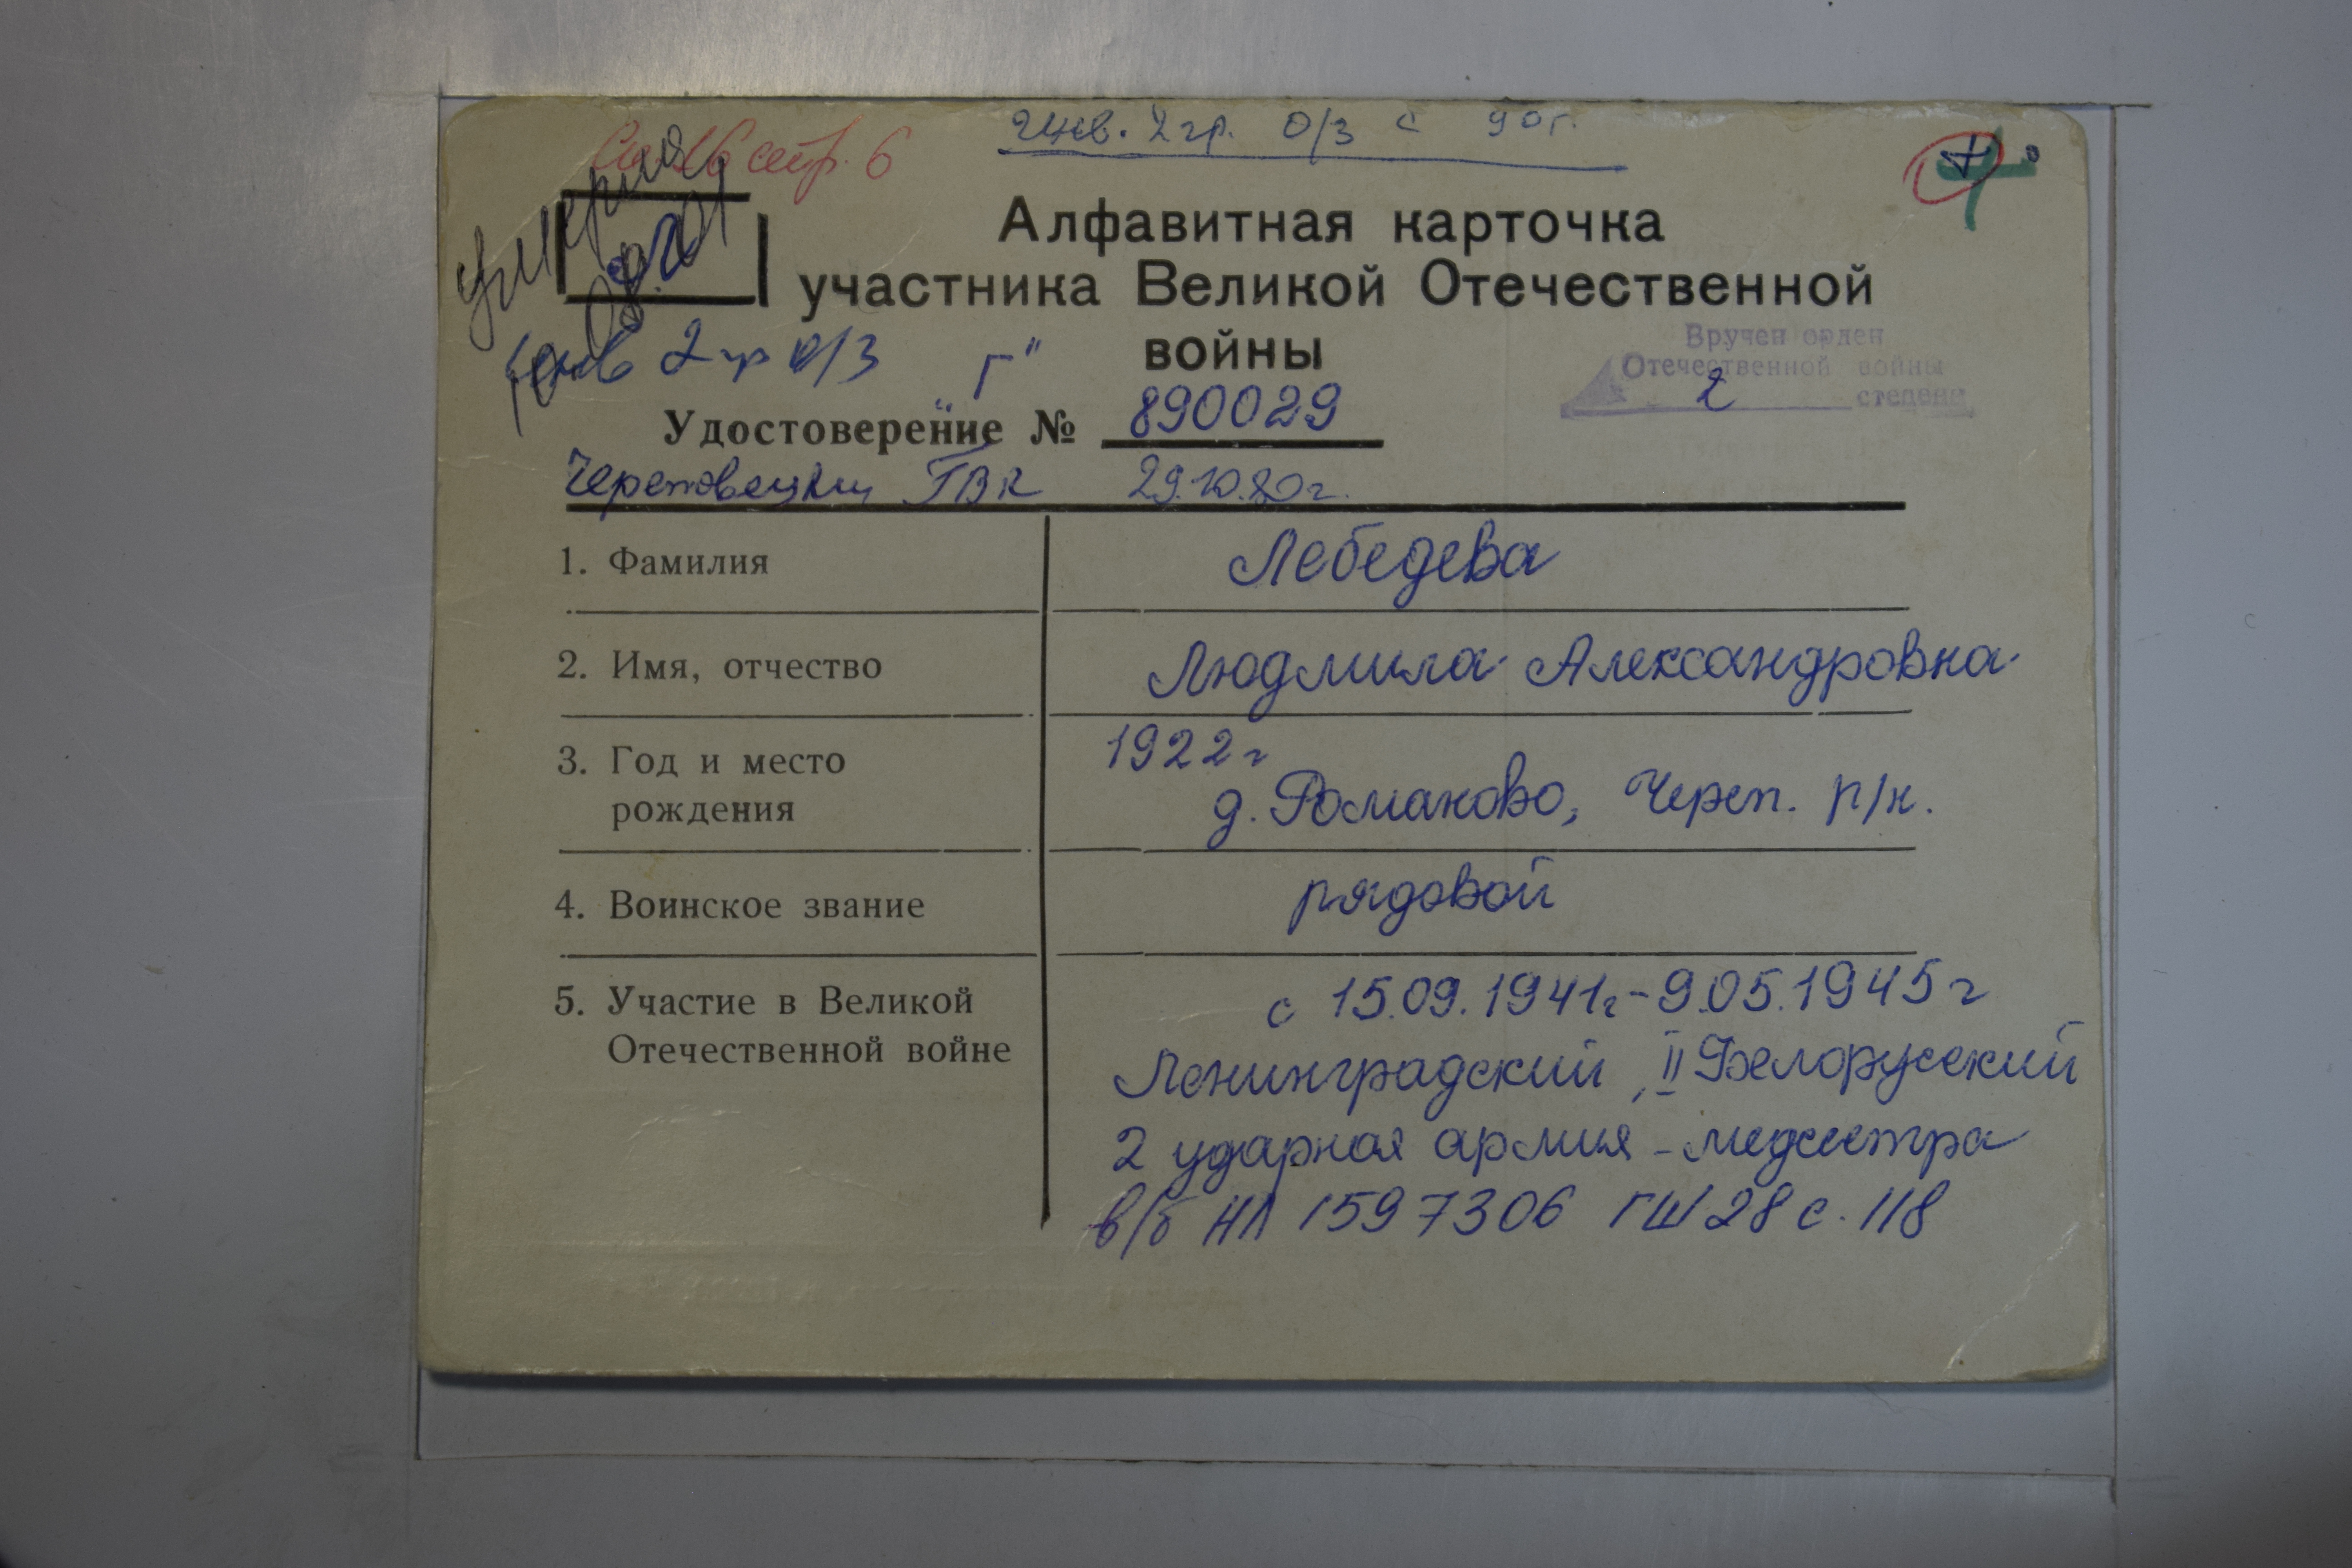 стр. 6
Инв. 2 гр. О/З с 90г.
умерла
Алфавитная карточка
участника Великой Отечественной
войны
инв 2 гр О/З "Г"
Вручен орден
Отечественной войны
2 степени
Удостоверение № 890029
Череповецким ГВК 29.10.80г.
1. Фамилия Лебедева
2. Имя, отчество Людмила Александровна
3. Год и место 1922г
рождения д. Романово, Череп. р/н.
4. Воинское звание рядовой
5. Участие в Великой с 15.09.1941г-9.05.1945г
Отечественной войне Ленинградский, II Белорусский
2 ударная армия - медсестра
в/б НЛ 1597306 ГШ 28 с. 118